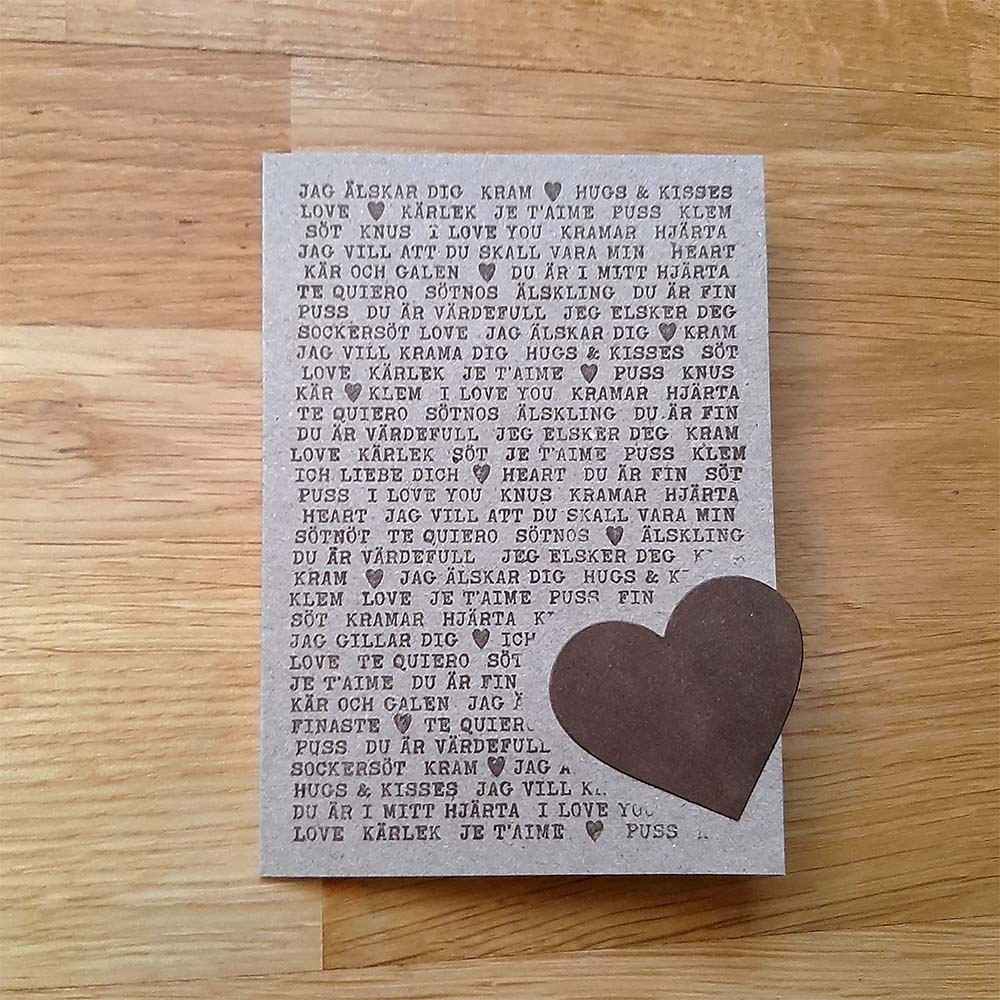 JAG ÄLSKAR DIG KRAM ♥ HUGS & KISSES
LOVE ♥ KÄRLEK JE T'AIME PUSS KLEM
SÖT KNUS I LOVE YOU KRAMAR HJÄRTA
JAG VILL ATT DU SKALL VARA MIN HEART
KÄR OCH GALEN ♥ DU ÄR I MITT HJÄRTA
TE QUIERO SÖTNOS ÄLSKLING DU ÄR FIN
PUSS DU ÄR VÄRDEFULL JEG ELSKER DEG
SOCKERSÖT LOVE JAG ÄLSKAR DIG ♥ KRAM
JAG VILL KRAMA DIG HUGS & KISSES SÖT
LOVE KÄRLEK JE T'AIME ♥ PUSS KNUS
KÄR ♥ KLEM I LOVE YOU KRAMAR HJÄRTA
TE QUIERO SÖTNOS ÄLSKLING DU ÄR FIN
DU ÄR VÄRDEFULL JEG ELSKER DEG KRAM
LOVE KÄRLEK SÖT JE T'AIME PUSS KLEM
ICH LIEBE DICH ♥ HEART DU ÄR FIN SÖT
PUSS I LOVE YOU KNUS KRAMAR HJÄRTA
HEART JAG VILL ATT DU SKALL VARA MIN
SÖTNÖT TE QUIERO SÖTNOS ♥ ÄLSKLING
DU ÄR VÄRDEFULL JEG ELSKER DEG
KRAM ♥ JAG ÄLSKAR DIG HUGS &
KLEM LOVE JE T'AIME PUSS FIN
SÖT KRAMAR HJÄRTA
JAG GILLAR DIG ♥ ICH
LOVE TE QUIERO SÖT
JE T'AIME DU ÄR FIN
KÄR OCH GALEN JAG
FINASTE ♥ TE QUIERO
PUSS DU ÄR VÄRDEFULL
SOCKERSÖT KRAM ♥ JAG
HUGS & KISSES JAG VILL
DU ÄR I MITT HJÄRTA I LOVE YOU
LOVE KÄRLEK JE T'AIME ♥ PUSS